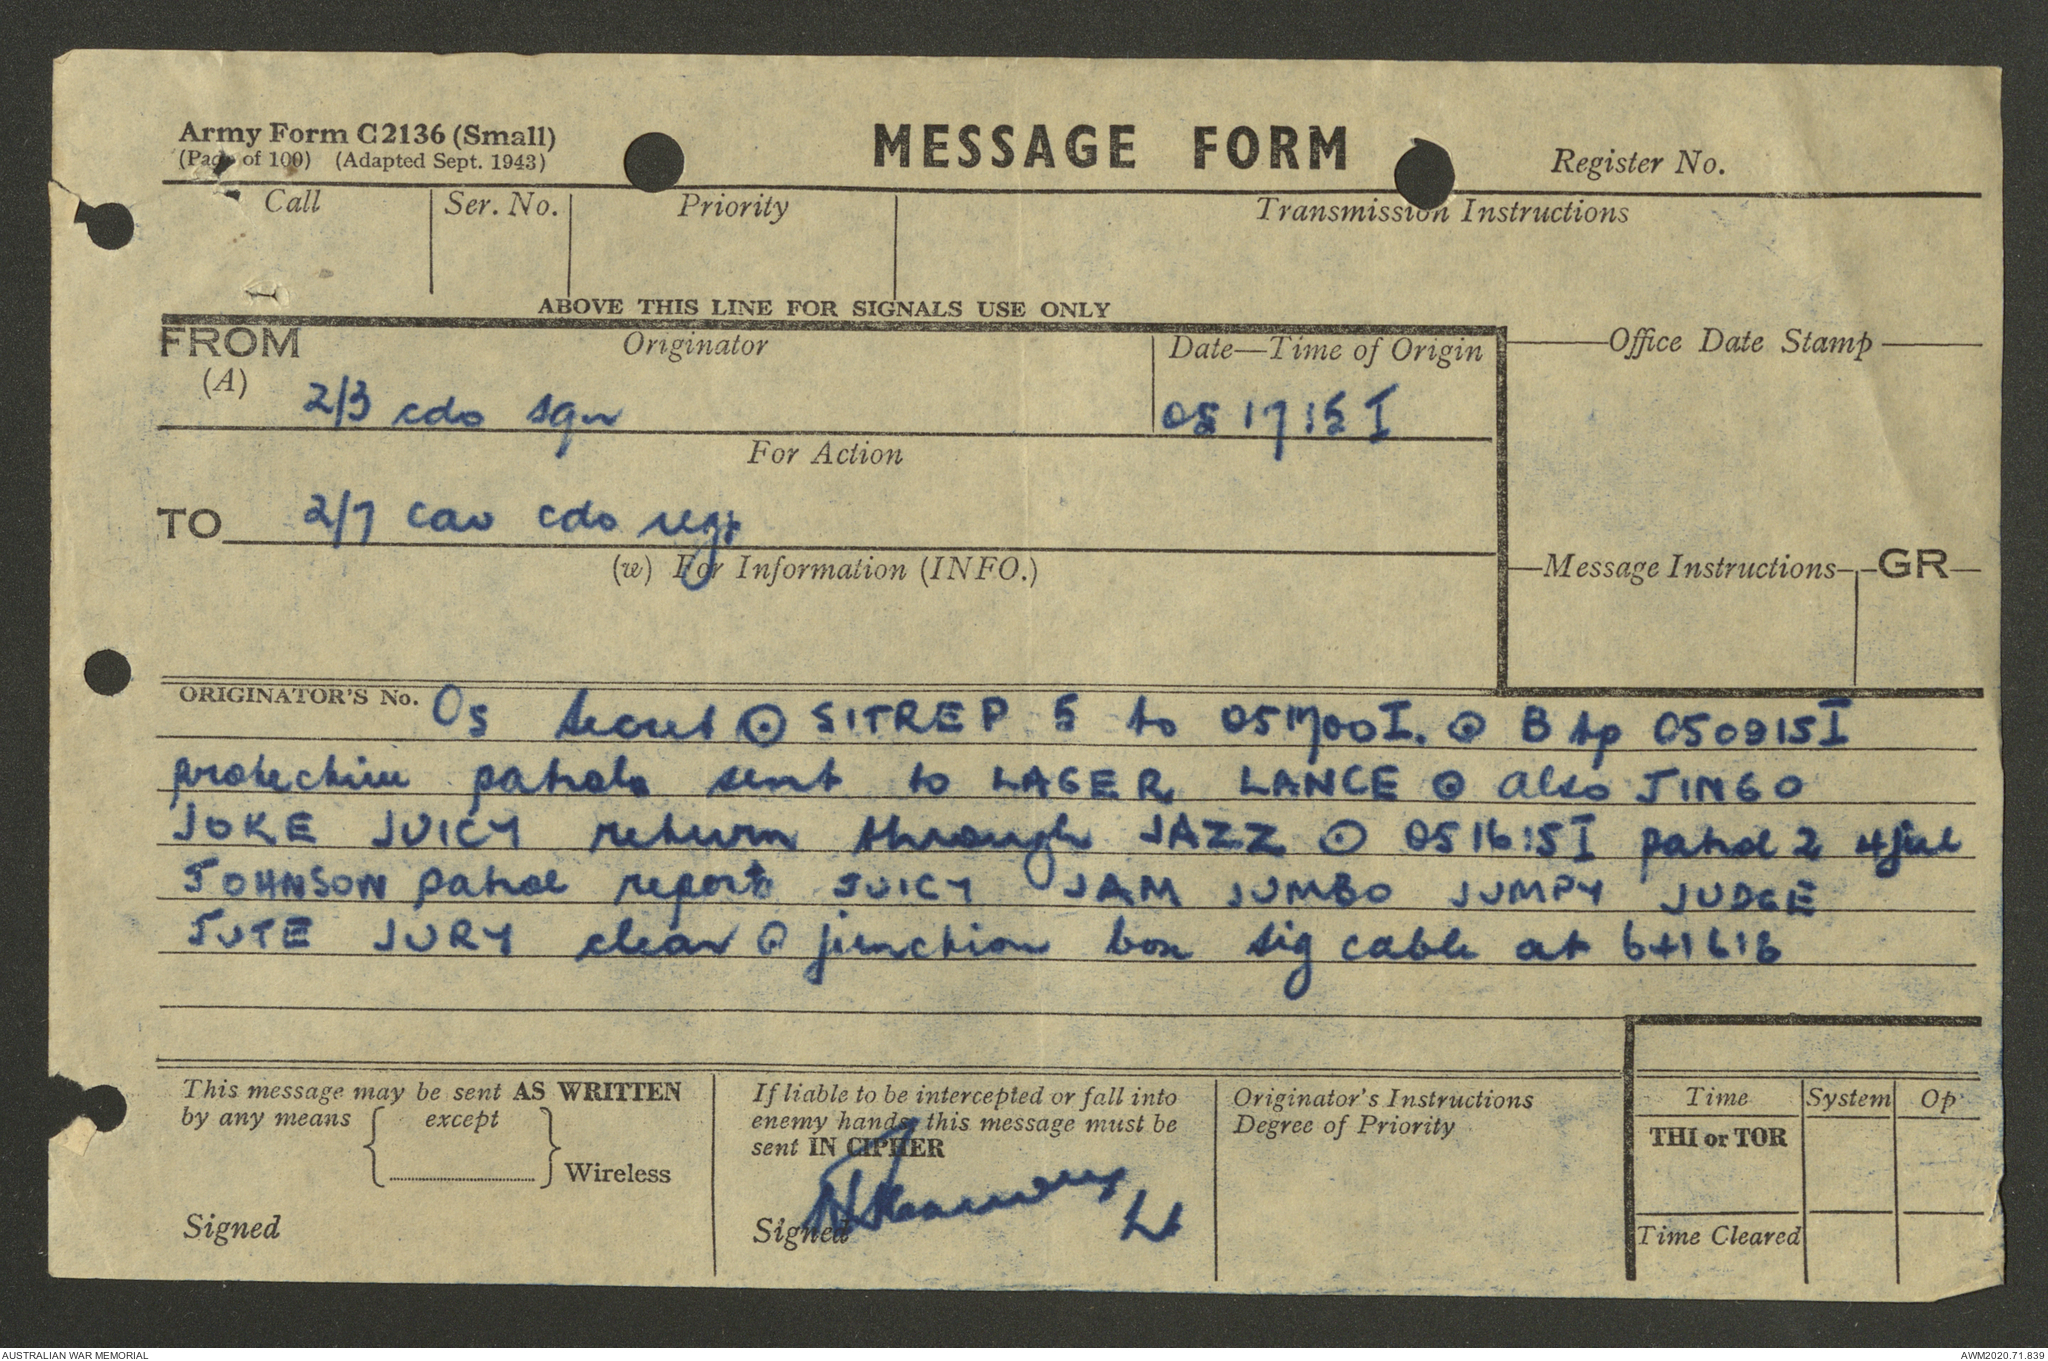 Army Form C2136 (Small)
(Pads of 100) (Adapted Sept. 1943)
MESSAGE FORM
Register No.
Call
Ser. No.
Priority
Transmission Instructions
ABOVE THIS LINE FOR SIGNALS USE ONLY
FROM
(A)
Originator
Date—Time of Origin
Office Date Stamp
2/3 cdo sqn
051715I
For Action
TO
2/7 cav cdo regt
(w) For Information (INFO.)
Message Instructions
GR
ORIGINATOR'S No.
O5 Secret ⊙ SITREP 5 to 051700I. ⊙ B tp 050915I
protective patrols sent to LAGER LANCE ⊙ also JINGO
JOKE JUICY return through JAZZ ⊙ 051615I patrol 2 4 jul
JOHNSON patrol report JUICY JAM JUMBO JUMPY JUDGE
JUTE JURY clear ⊙ junction box sig cable at
This message may be sent AS WRITTEN
by any means
except
Wireless
Signed
If liable to be intercepted or fall into
enemy hands, this message must be
sent IN CIPHER
Signed
Lt
Originator's Instructions
Degree of Priority
Time
System
Op
THI or TOR
Time Cleared
AUSTRALIAN WAR MEMORIAL
AWM2020.71.839